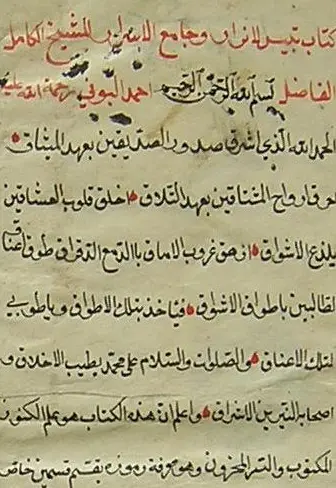 كتاب تيسير الانوار وجامع الاسرار للشيخ الكامل
الفاضل بسم الله الرحمن الرحيم احمد البوني رحمة الله عليه
الحمد لله الذي اشرق صدور الصديقين بعهد الميثاق
ارواح المشتاقين بعهد التلاق اخلق قلوب العشاقين
بلدع الاشواق ازهق غروب الاماق بالدمع الدقراق طوق اعناق
لطالبين باطواق الاشواق فيا حذ بتلك الاطواق ويا طوبي
لتلك الاعناق والصلوات والسلام على محمد بطيب الاخلاق و
اصحابه النيرين الاشراق واعلم ان هذه الكتاب هو بعلم المكنون
المكتوب والسر المخزون وهو معرفة رموزه بقسم قسمين خاص